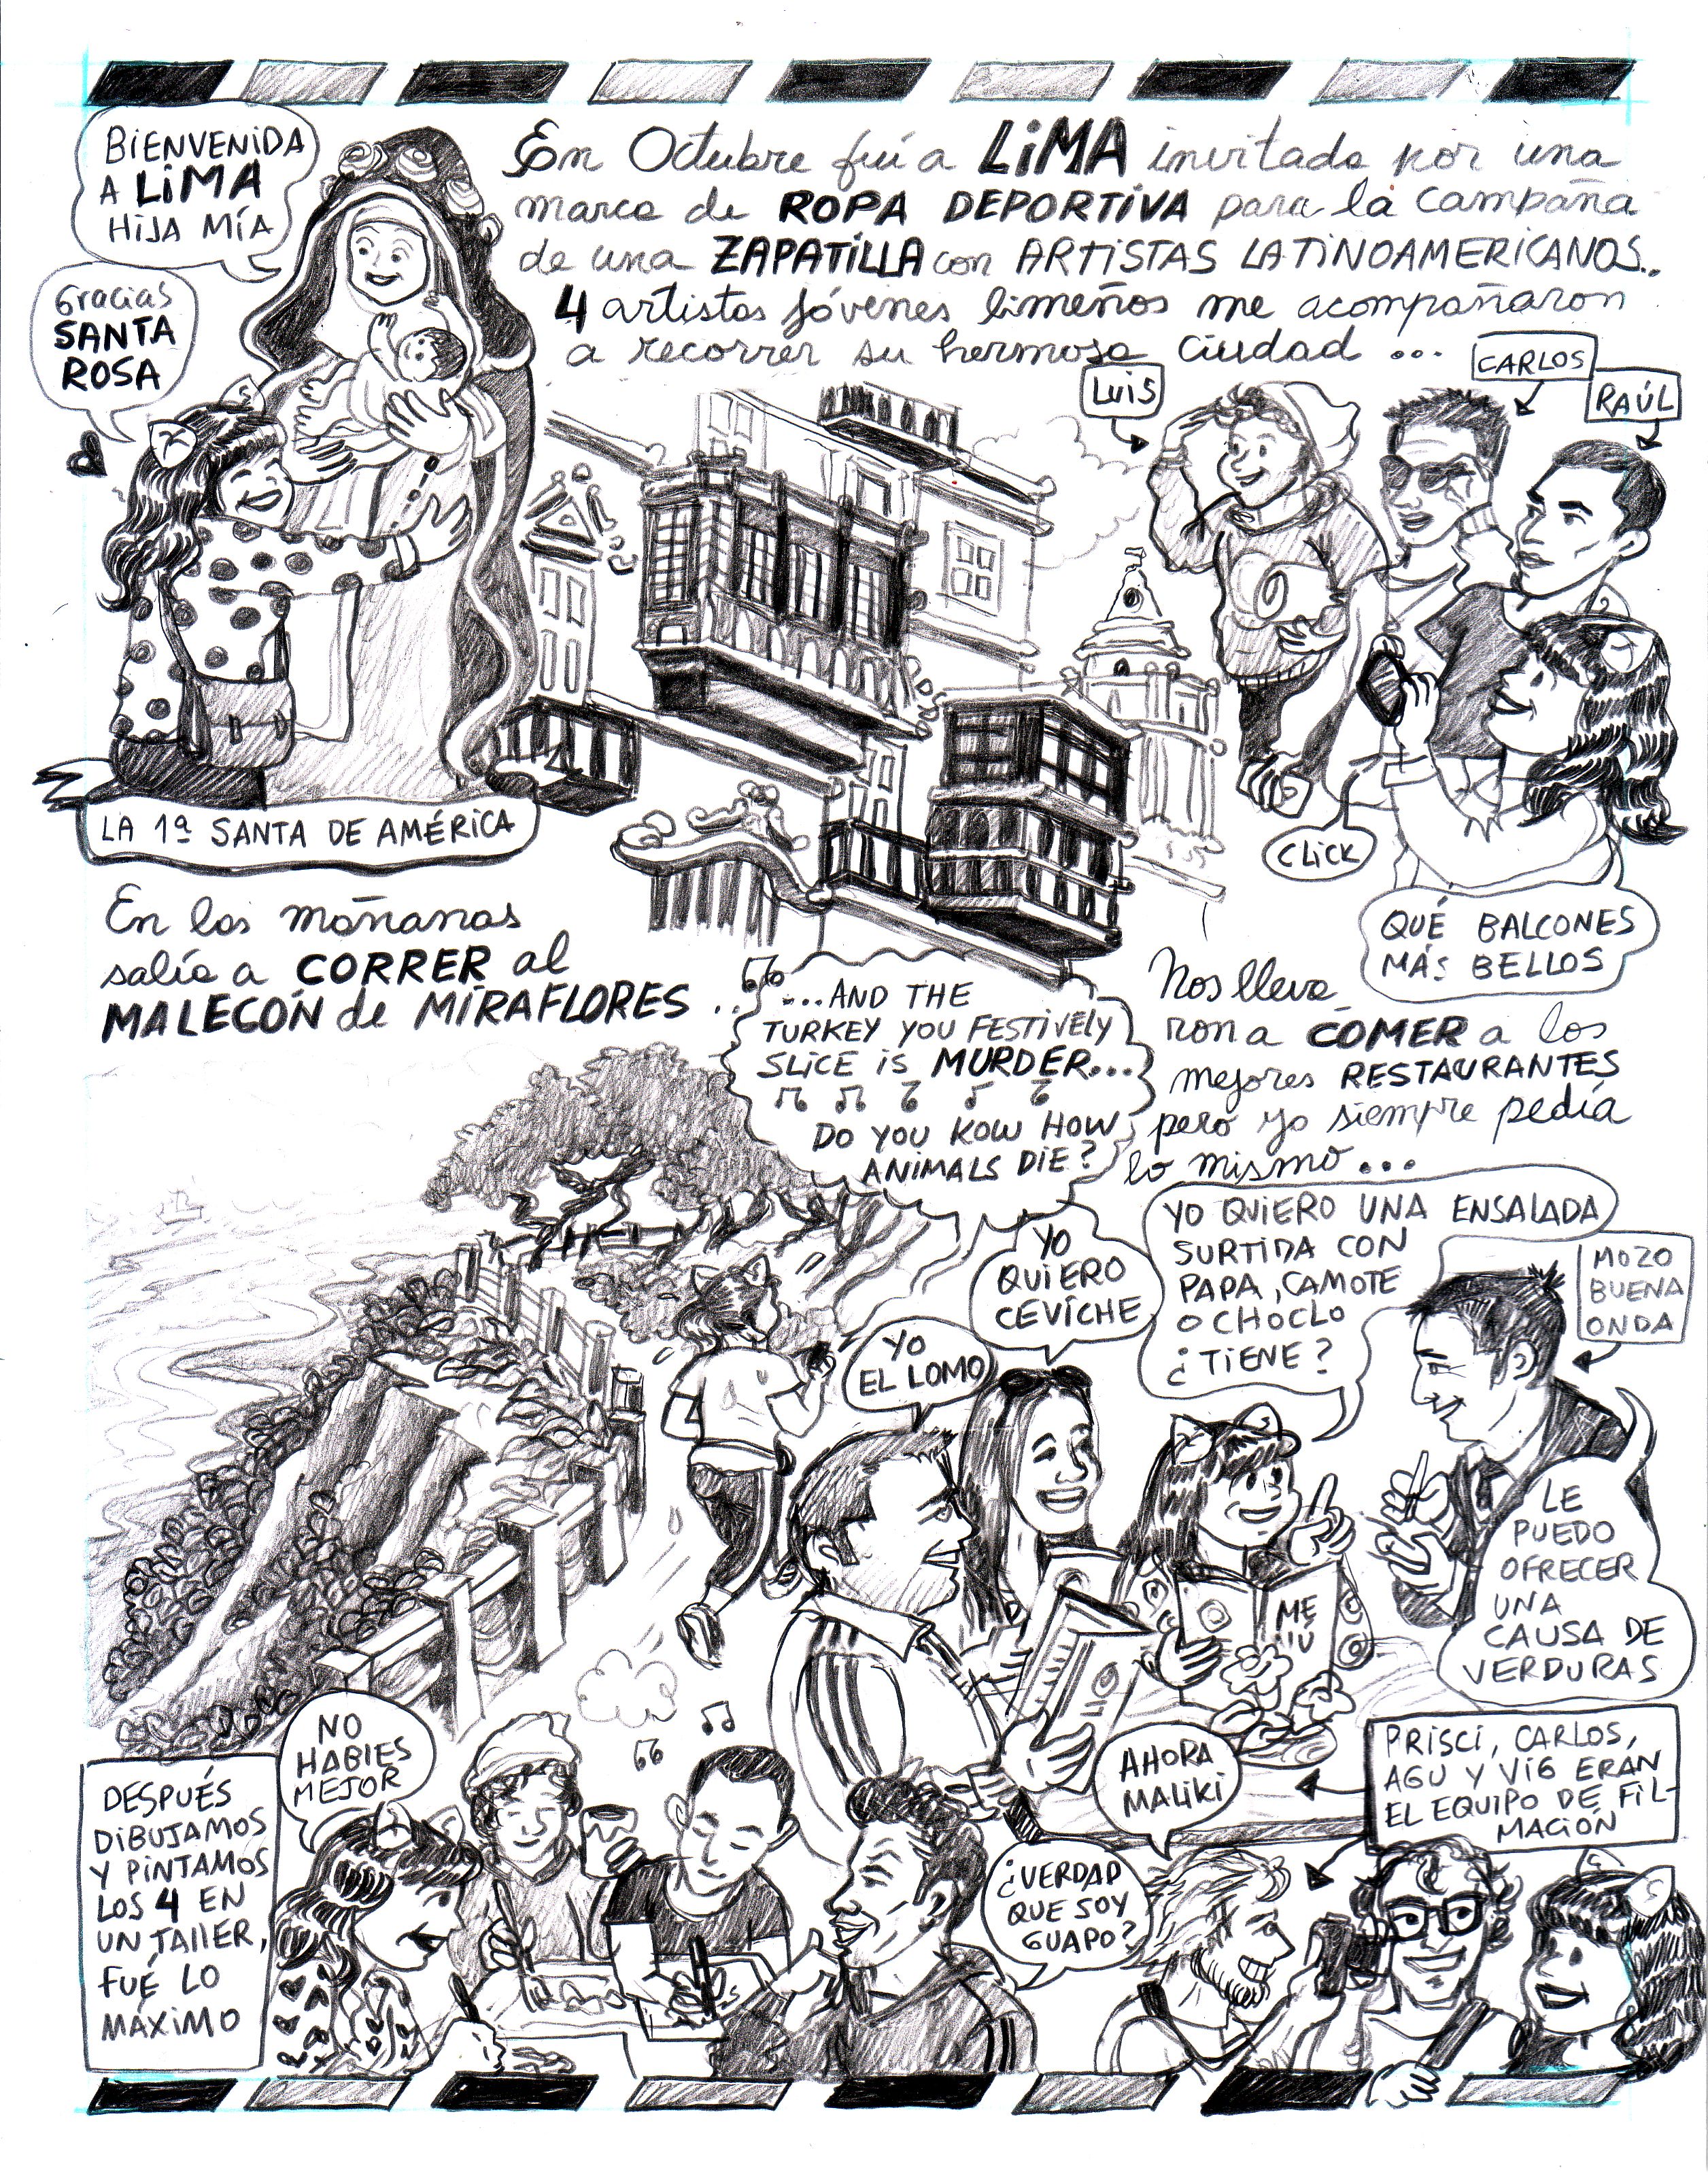 BIENVENIDA
A LIMA
HIJA MÍA
Gracias
SANTA
ROSA
En Octubre fuí a LIMA invitada por una
marca de ROPA DEPORTIVA para la campaña
de una ZAPATILLA con ARTISTAS LATINOAMERICANOS..
4 artistas jóvenes limeños me acompañaron
a recorrer su hermosa ciudad ...
LUIS
CARLOS
RAÚL
LA 1ª SANTA DE AMÉRICA
CLICK
QUÉ BALCONES
MÁS BELLOS
En las mañanas
salía a CORRER al
MALECÓN de MIRAFLORES ..
...AND THE
TURKEY YOU FESTIVELY
SLICE IS MURDER...
DO YOU KOW HOW
ANIMALS DIE?
Nos lleva
ron a COMER a los
mejores RESTAURANTES
pero yo siempre pedía
lo mismo...
YO
EL LOMO
YO
QUIERO
CEVICHE
YO QUIERO UNA ENSALADA
SURTIDA CON
PAPA, CAMOTE
O CHOCLO
¿TIENE?
MOZO
BUENA
ONDA
LE
PUEDO
OFRECER
UNA
CAUSA DE
VERDURAS
ME
NÚ
DESPUÉS
DIBUJAMOS
Y PINTAMOS
LOS 4 EN
UN TALLER,
FUÉ LO
MÁXIMO
NO
HABIES
MEJOR
¿VERDAD
QUE SOY
GUAPO?
AHORA
MALIKI
PRISCI, CARLOS,
AGU Y VIG ERAN
EL EQUIPO DE FIL-
MACIÓN